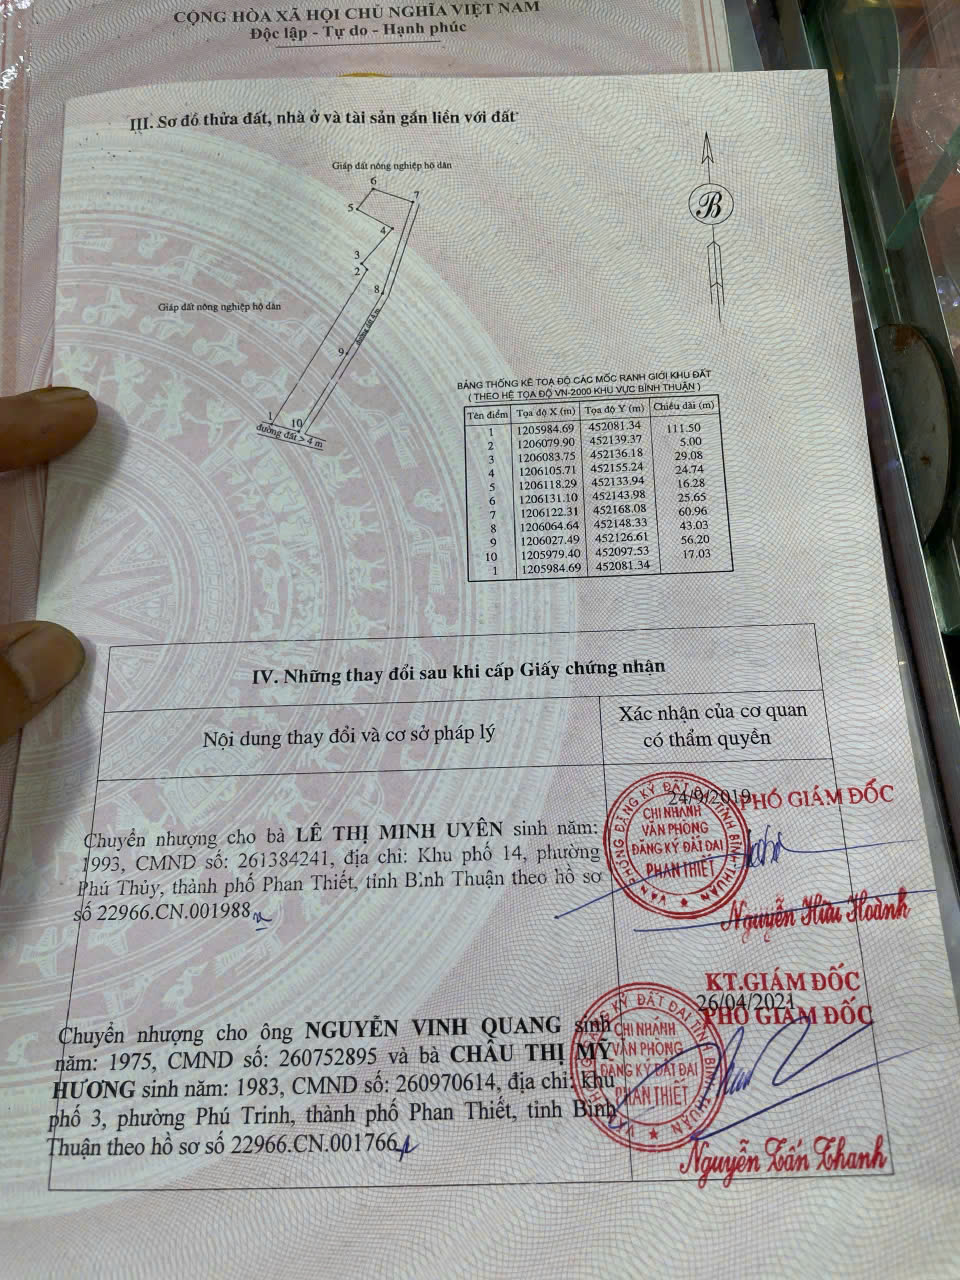 CỘNG HÒA XÃ HỘI CHỦ NGHĨA VIỆT NAM
Độc lập - Tự do - Hạnh phúc
III. Sơ đồ thửa đất, nhà ở và tài sản gắn liền với đất
Giáp đất nông nghiệp hộ dân
6
7
5
4
3
2
8
B
Giáp đất nông nghiệp hộ dân
9
1
10
đường đất > 4 m
BẢNG THỐNG KÊ TỌA ĐỘ CÁC MỐC RANH GIỚI KHU ĐẤT
( THEO HỆ TỌA ĐỘ VN-2000 KHU VỰC BÌNH THUẬN )
Tên điểm Tọa độ X (m) Tọa độ Y (m) Chiều dài (m)
1 1205984.69 452081.34 111.50
2 1206079.90 452139.37 5.00
3 1206083.75 452136.18 29.08
4 1206105.71 452155.24 24.74
5 1206118.29 452133.94 16.28
6 1206131.10 452143.98 25.65
7 1206122.31 452168.08 60.96
8 1206064.64 452148.33 43.03
9 1206027.49 452126.61 56.20
10 1205979.40 452097.53 17.03
1 1205984.69 452081.34
IV. Những thay đổi sau khi cấp Giấy chứng nhận
Nội dung thay đổi và cơ sở pháp lý
Xác nhận của cơ quan
có thẩm quyền
Chuyển nhượng cho bà LÊ THỊ MINH UYÊN sinh năm:
1993, CMND số: 261384241, địa chỉ: Khu phố 14, phường
Phú Thủy, thành phố Phan Thiết, tỉnh Bình Thuận theo hồ sơ
số 22966.CN.001988
24/9/2019
PHÓ GIÁM ĐỐC
VĂN PHÒNG ĐĂNG KÝ ĐẤT ĐAI TỈNH BÌNH THUẬN
CHI NHÁNH
VĂN PHÒNG
ĐĂNG KÝ ĐẤT ĐAI
PHAN THIẾT
Nguyễn Hữu Hoành
Chuyển nhượng cho ông NGUYỄN VINH QUANG sinh
năm: 1975, CMND số: 260752895 và bà CHÂU THỊ MỸ
HƯƠNG sinh năm: 1983, CMND số: 260970614, địa chỉ: khu
phố 3, phường Phú Trinh, thành phố Phan Thiết, tỉnh Bình
Thuận theo hồ sơ số 22966.CN.001766
KT.GIÁM ĐỐC
26/04/2021
PHÓ GIÁM ĐỐC
CHI NHÁNH
VĂN PHÒNG
ĐĂNG KÝ ĐẤT ĐAI
PHAN THIẾT
Nguyễn Tấn Thanh